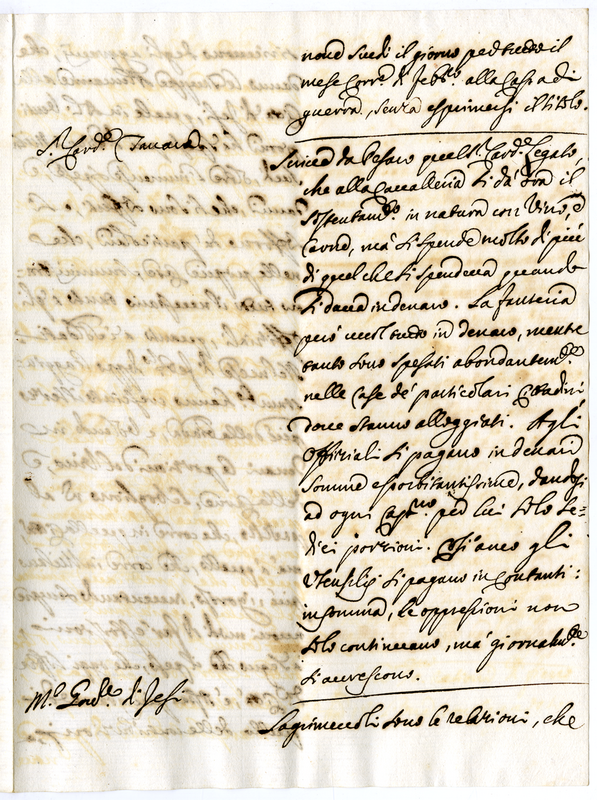 scudi il giorno per tutto il
mese corr.e di Febb.o alla Cassa di
guerra, senza esprimersi il titolo.
S.r Card.e Tanara
Scrive da Pesaro quel S.r Card.e Legato,
che alla Cavalleria si dà ora il
sostentam.to in natura con vino, e
Carne, mà si spende molto di più
di quel che si spendeva quando
si dava in denaro. La fanteria
però vuol tutto in denaro, mentre
tanto sono spesati abondantem.te
nelle Case de' particolari Cittadini
dove stanno alloggiati. Agli
Offiziali si pagano in denaro
somme esorbitantissime, dandosi
ad ogni Cap.no per lui solo se=
dici porzioni. Osi anco gli
Utensilij si pagano in contanti:
insomma, le oppressioni non
solo continuano, mà giornalm.te
si accrescono.
M.r Gov.re di Jesi
Lagrimevoli sono le relazioni, che